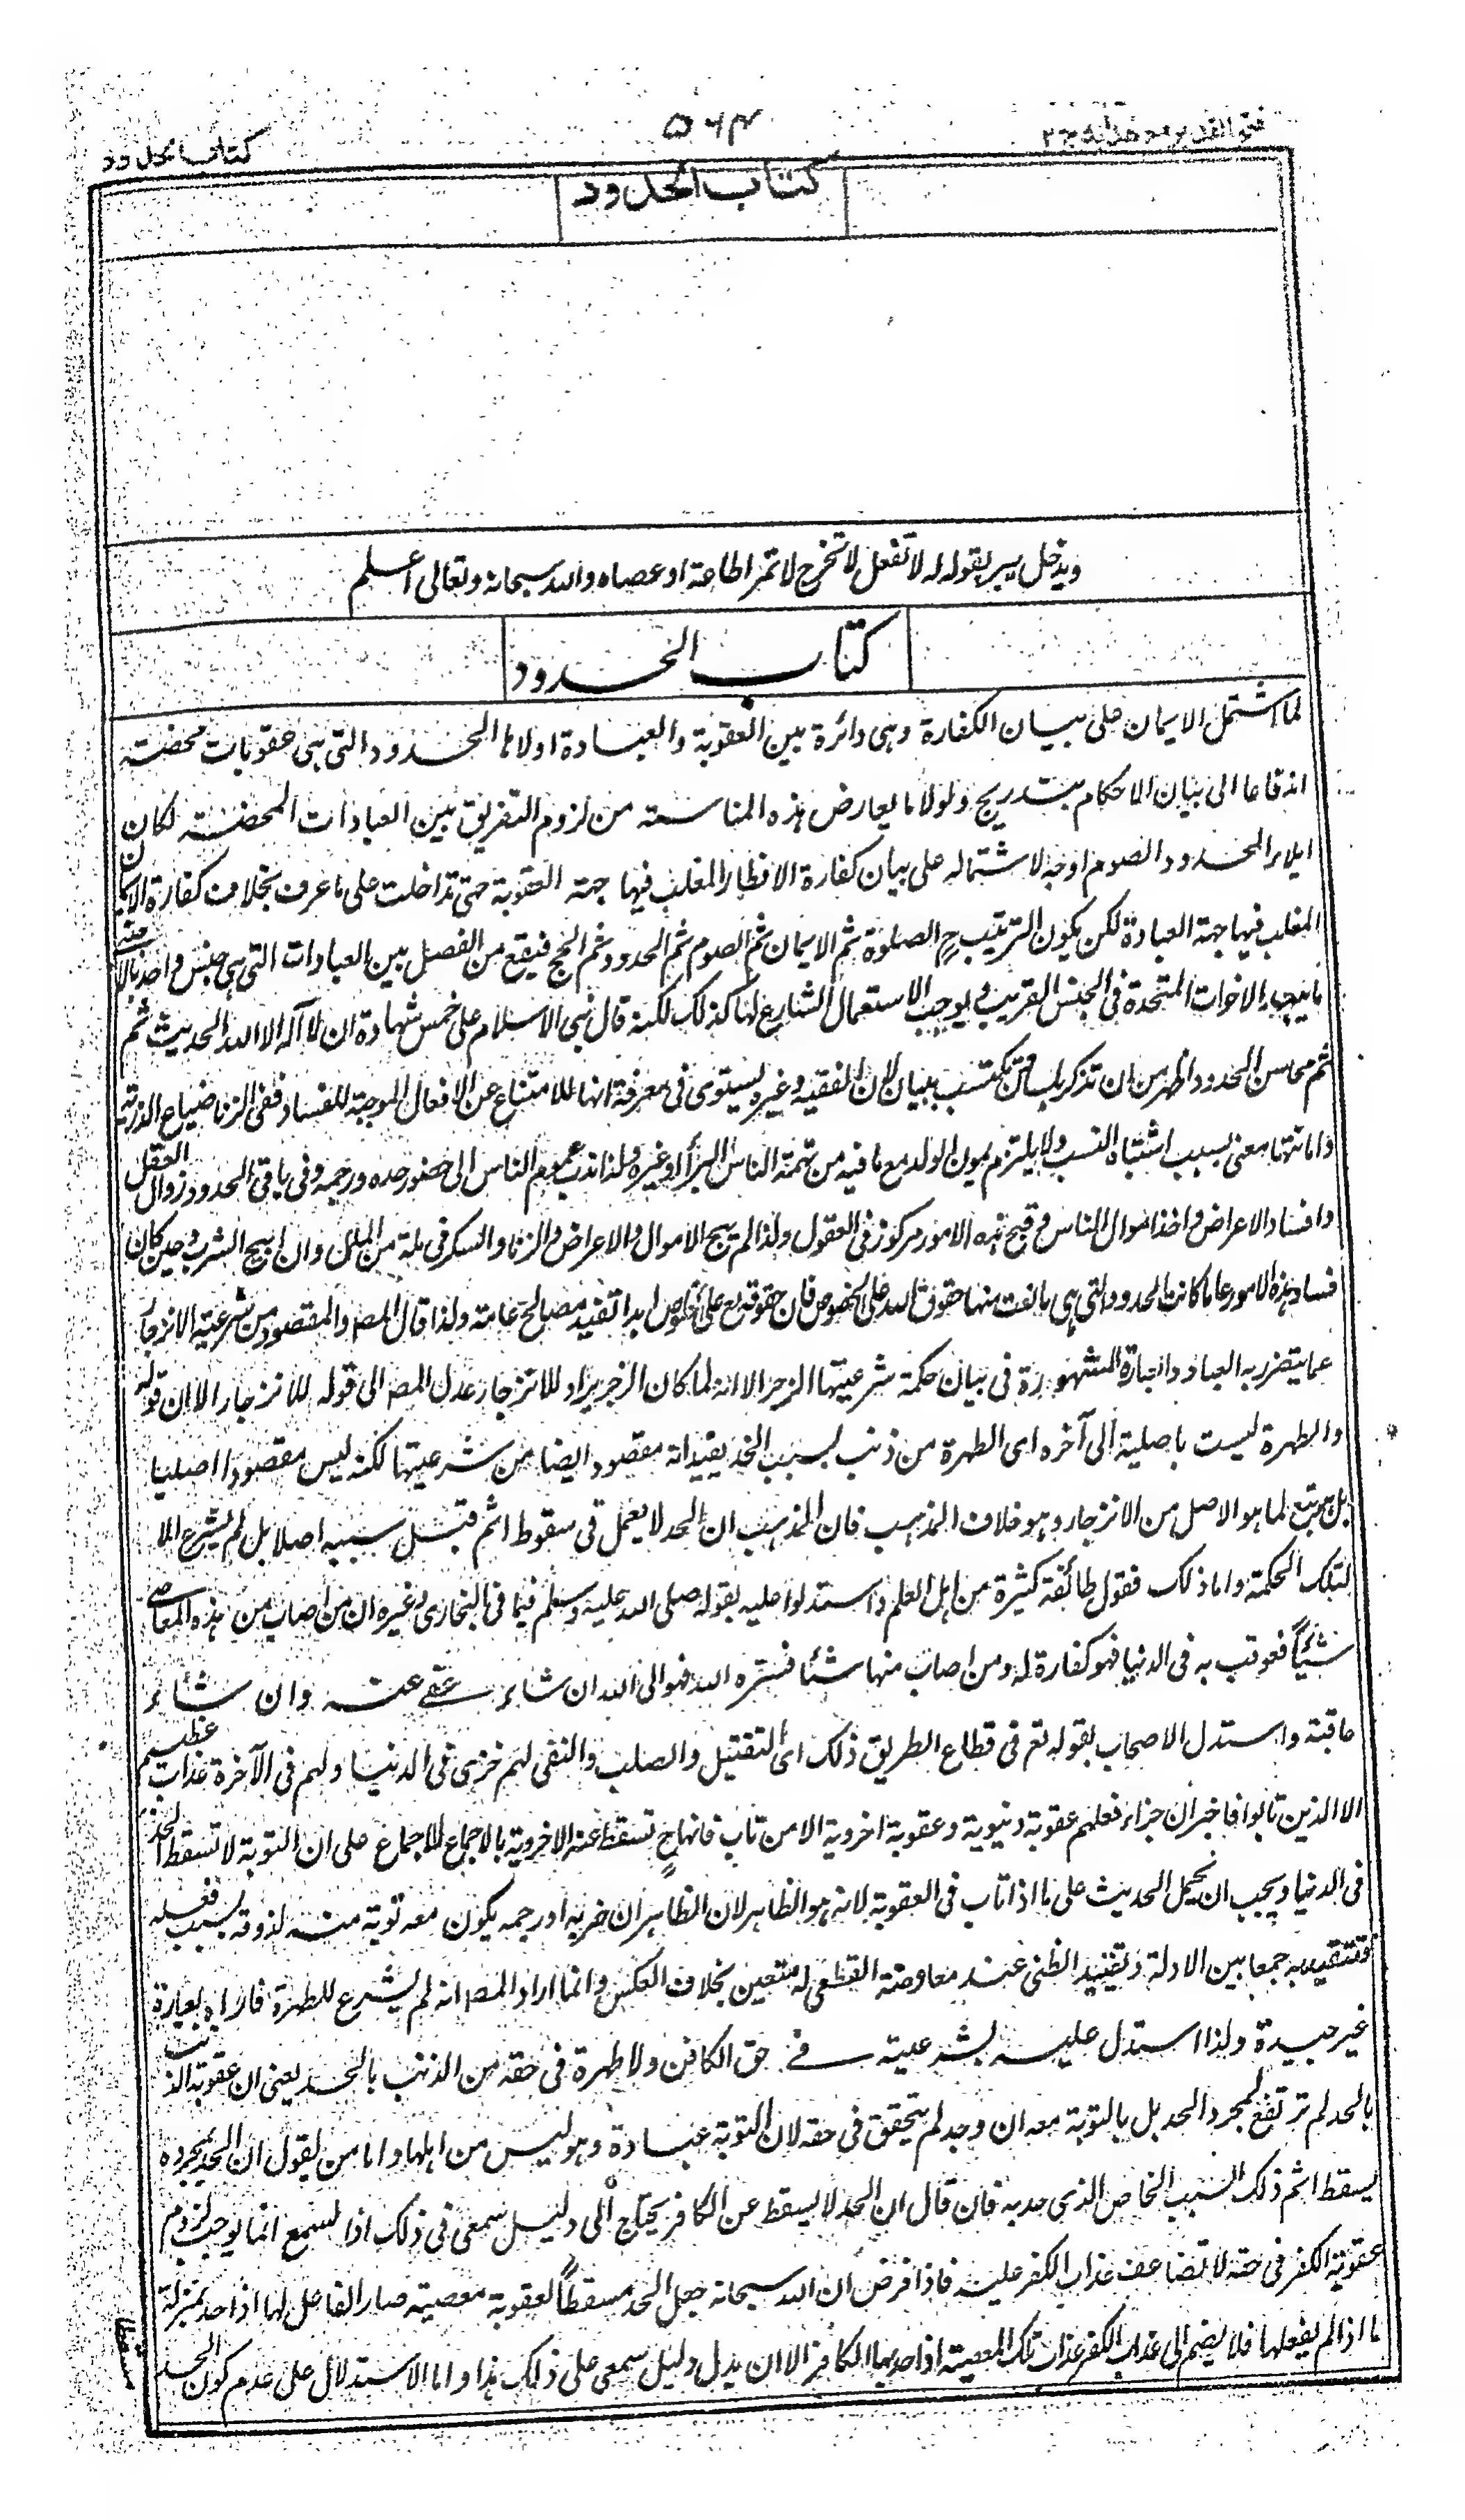 فتح القدير مع هداية ج ٢
٥٦٣
كتاب الحدود
كتاب الحدود
ويدخل يسير بقوله له لا تفعل لا تخرج لا تمر اطاعه او عصاه والله سبحانه وتعالى اعلم
كتاب الحدود
لما اشتمل الايمان على بيان الكفارة وهي دائرة بين العقوبة والعبادة اولاها الحدود التي هي عقوبات محضة
اندفاعا الى بيان الاحكام بتدريج ولولا ما يعارض هذه المناسبة من لزوم التفريق بين العبادات المحضة لكان
ايلاء الحدود الصوم اوجه لاشتماله على بيان كفارة الافطار المغلب فيها جهة العقوبة حتى تداخلت على ما عرف بخلاف كفارة الايمان
المغلب فيها جهة العبادة لكن يكون الترتيب ح الصلوة ثم الايمان ثم الصوم ثم الحدود ثم الحج فيقع من الفصل بين العبادات التي هي جنس واحد بالاجنبي
ما يبعد الاخوات المتحدة في الجنس القريب ويوجب الاستعمال الشارع لها كذلك لكنه قال بني الاسلام على خمس شهادة ان لا اله الا الله الحديث ثم
ثم محاسن الحدود اظهر من ان تذكر بلسان وتكتسب ببيان لان الفقيه وغيره يستوى في معرفة انها للامتناع عن الافعال الموجبة للفساد ففي الزنا ضياع الذرية
واماتتها معنى بسبب اشتباه النسب ولا يلتزم بمون الولد مع ما فيه من تهمة الناس البرأ او غيره ولذا ندب عموم الناس الى حضور حده ورجمه وفي باقي الحدود زوال العقل
وافساد الاعراض واخذ اموال الناس وقبح هذه الامور مركوز في العقول ولذا لم تبح الاموال والاعراض والزنا والسكر في ملة من الملل وان ابيح الشرب وحين كان
فساد هذه الامور عاما كانت الحدود التي هي مانعة منها حقوق الله على الخصوص فان حقوقه تع على الخلوص ابدا تفيد مصالح عامة ولذا قال المص والمقصود من شرعيته الانزجار
عما يتضرر به العباد والعبارة المشهورة في بيان حكمة شرعيتها الزجر الا انه لما كان الزجر يراد للانزجار عدل المص الى قوله للانزجار الا ان قوله
والطهرة ليست باصلية الى آخره اى الطهرة من ذنب بسبب الحد يفيد انه مقصود ايضا من شرعيتها لكنه ليس مقصودا اصليا
بل هو تبع لما هو الاصل من الانزجار وهو خلاف المذهب فان المذهب ان الحد لا يعمل في سقوط اثم قبل سببه اصلا بل لم يشرع الا
لتلك الحكمة واما ذلك فقول طائفة كثيرة من اهل العلم واستدلوا عليه بقوله صلى الله عليه وسلم فيما في البخاري وغيره ان من اصاب من هذه المعاصي
شيئاً فعوقب به في الدنيا فهو كفارة له ومن اصاب منها شئا فستره الله فهو الى الله ان شاء عفى عنه وان شاء
عاقبه واستدل الاصحاب بقوله تع في قطاع الطريق ذلك اى التقتيل والصلب والنفي لهم خزى في الدنيا ولهم في الآخرة عذاب عظيم
الا الذين تابوا فاخبر ان جزاء فعلهم عقوبة دنيوية وعقوبة اخروية الا من تاب فانها ح تسقط عنه الاخروية بالاجماع للاجماع على ان التوبة لا تسقط الحد
في الدنيا ويجب ان يحمل الحديث على ما اذا تاب في العقوبة لانه هو الظاهر لان الظاهر ان ضربه او رجمه يكون معه توبة منه لذوقه بسبب فعله
فتقييده به جمعا بين الادلة وتقييد الظني عند معاوضة القطعي له متعين بخلاف العكس وانما اراد المص انه لم يشرع للطهرة فاداه بعبارة
غير جيدة ولذا استدل عليه بشرعيته في حق الكافر ولا طهرة في حقه من الذنب بالحد يعنى ان عقوبة الذنب
بالحد لم ترتفع لمجرد الحد بل بالتوبة معه ان وجد لم يتحقق في حقه لان التوبة عبادة وهو ليس من اهلها واما من يقول ان الحد بمجرده
يسقط اثم ذلك السبب الخاص الذى حد به فان قال ان الحد لا يسقط عن الكافر يحتاج الى دليل سمعى في ذلك اذا لسمع انما يوجب لزوم
عقوبة الكفر في حقه لا تضاعف عذاب الكفر عليه فاذا فرض ان الله سبحانه جعل الحد مسقطاً لعقوبة معصية صار الفاعل لها اذا حد بمنزلة
ما اذا لم يفعلها فلا يضم الى عذاب الكفر عذاب تلك المعصية اذا حد بها الكافر الا ان يدل دليل سمعى على ذلك هذا واما الاستدلال على عدم كون الحد
مسقطا